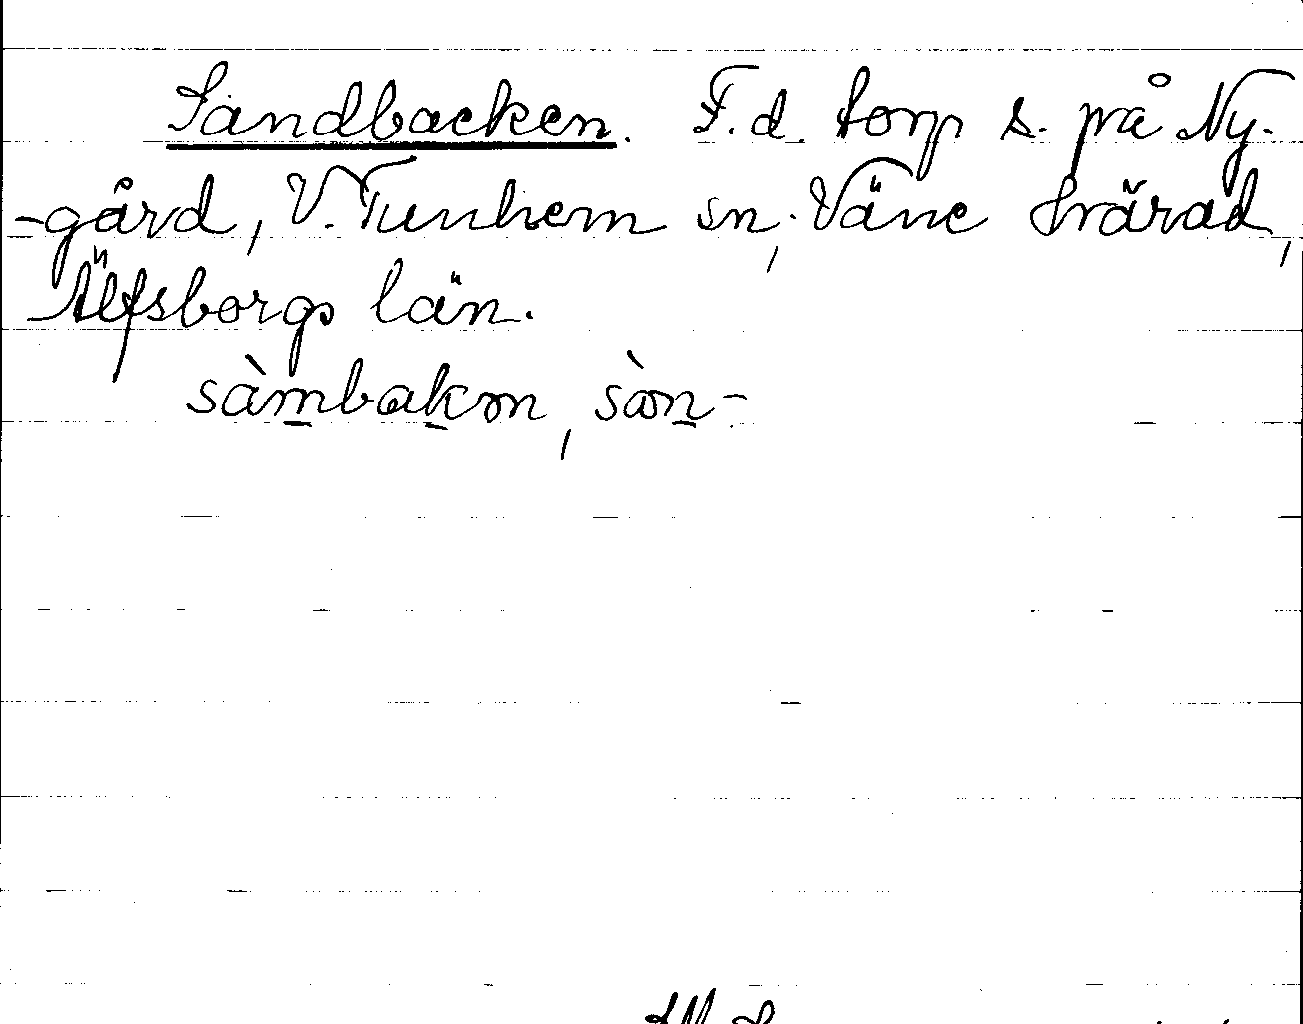 Sandbacken. F.d. torp s. på Ny-
-gård, V. Tunhem sn, Väne härad,
Älfsborgs län.
sàmbakm, sàn-